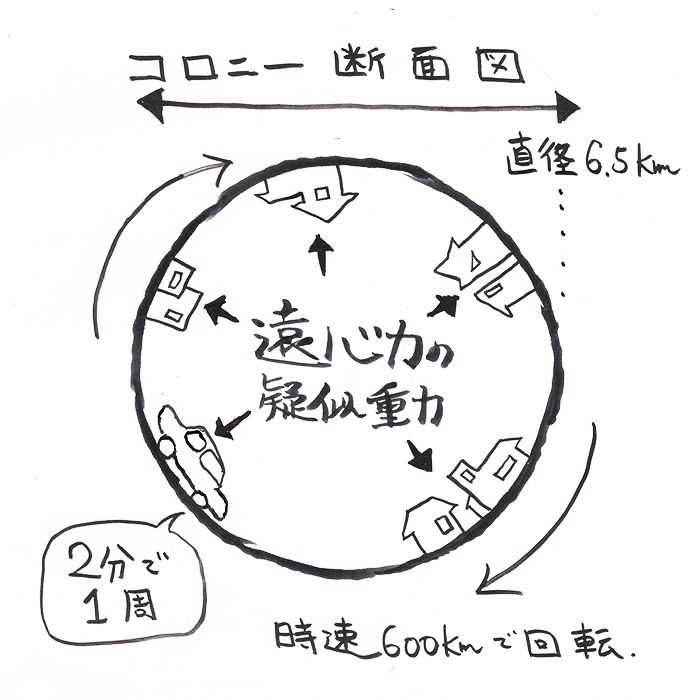 コロニー断面図
直径6.5km
遠心力の
疑似重力
2分で
1周
時速600kmで回転.